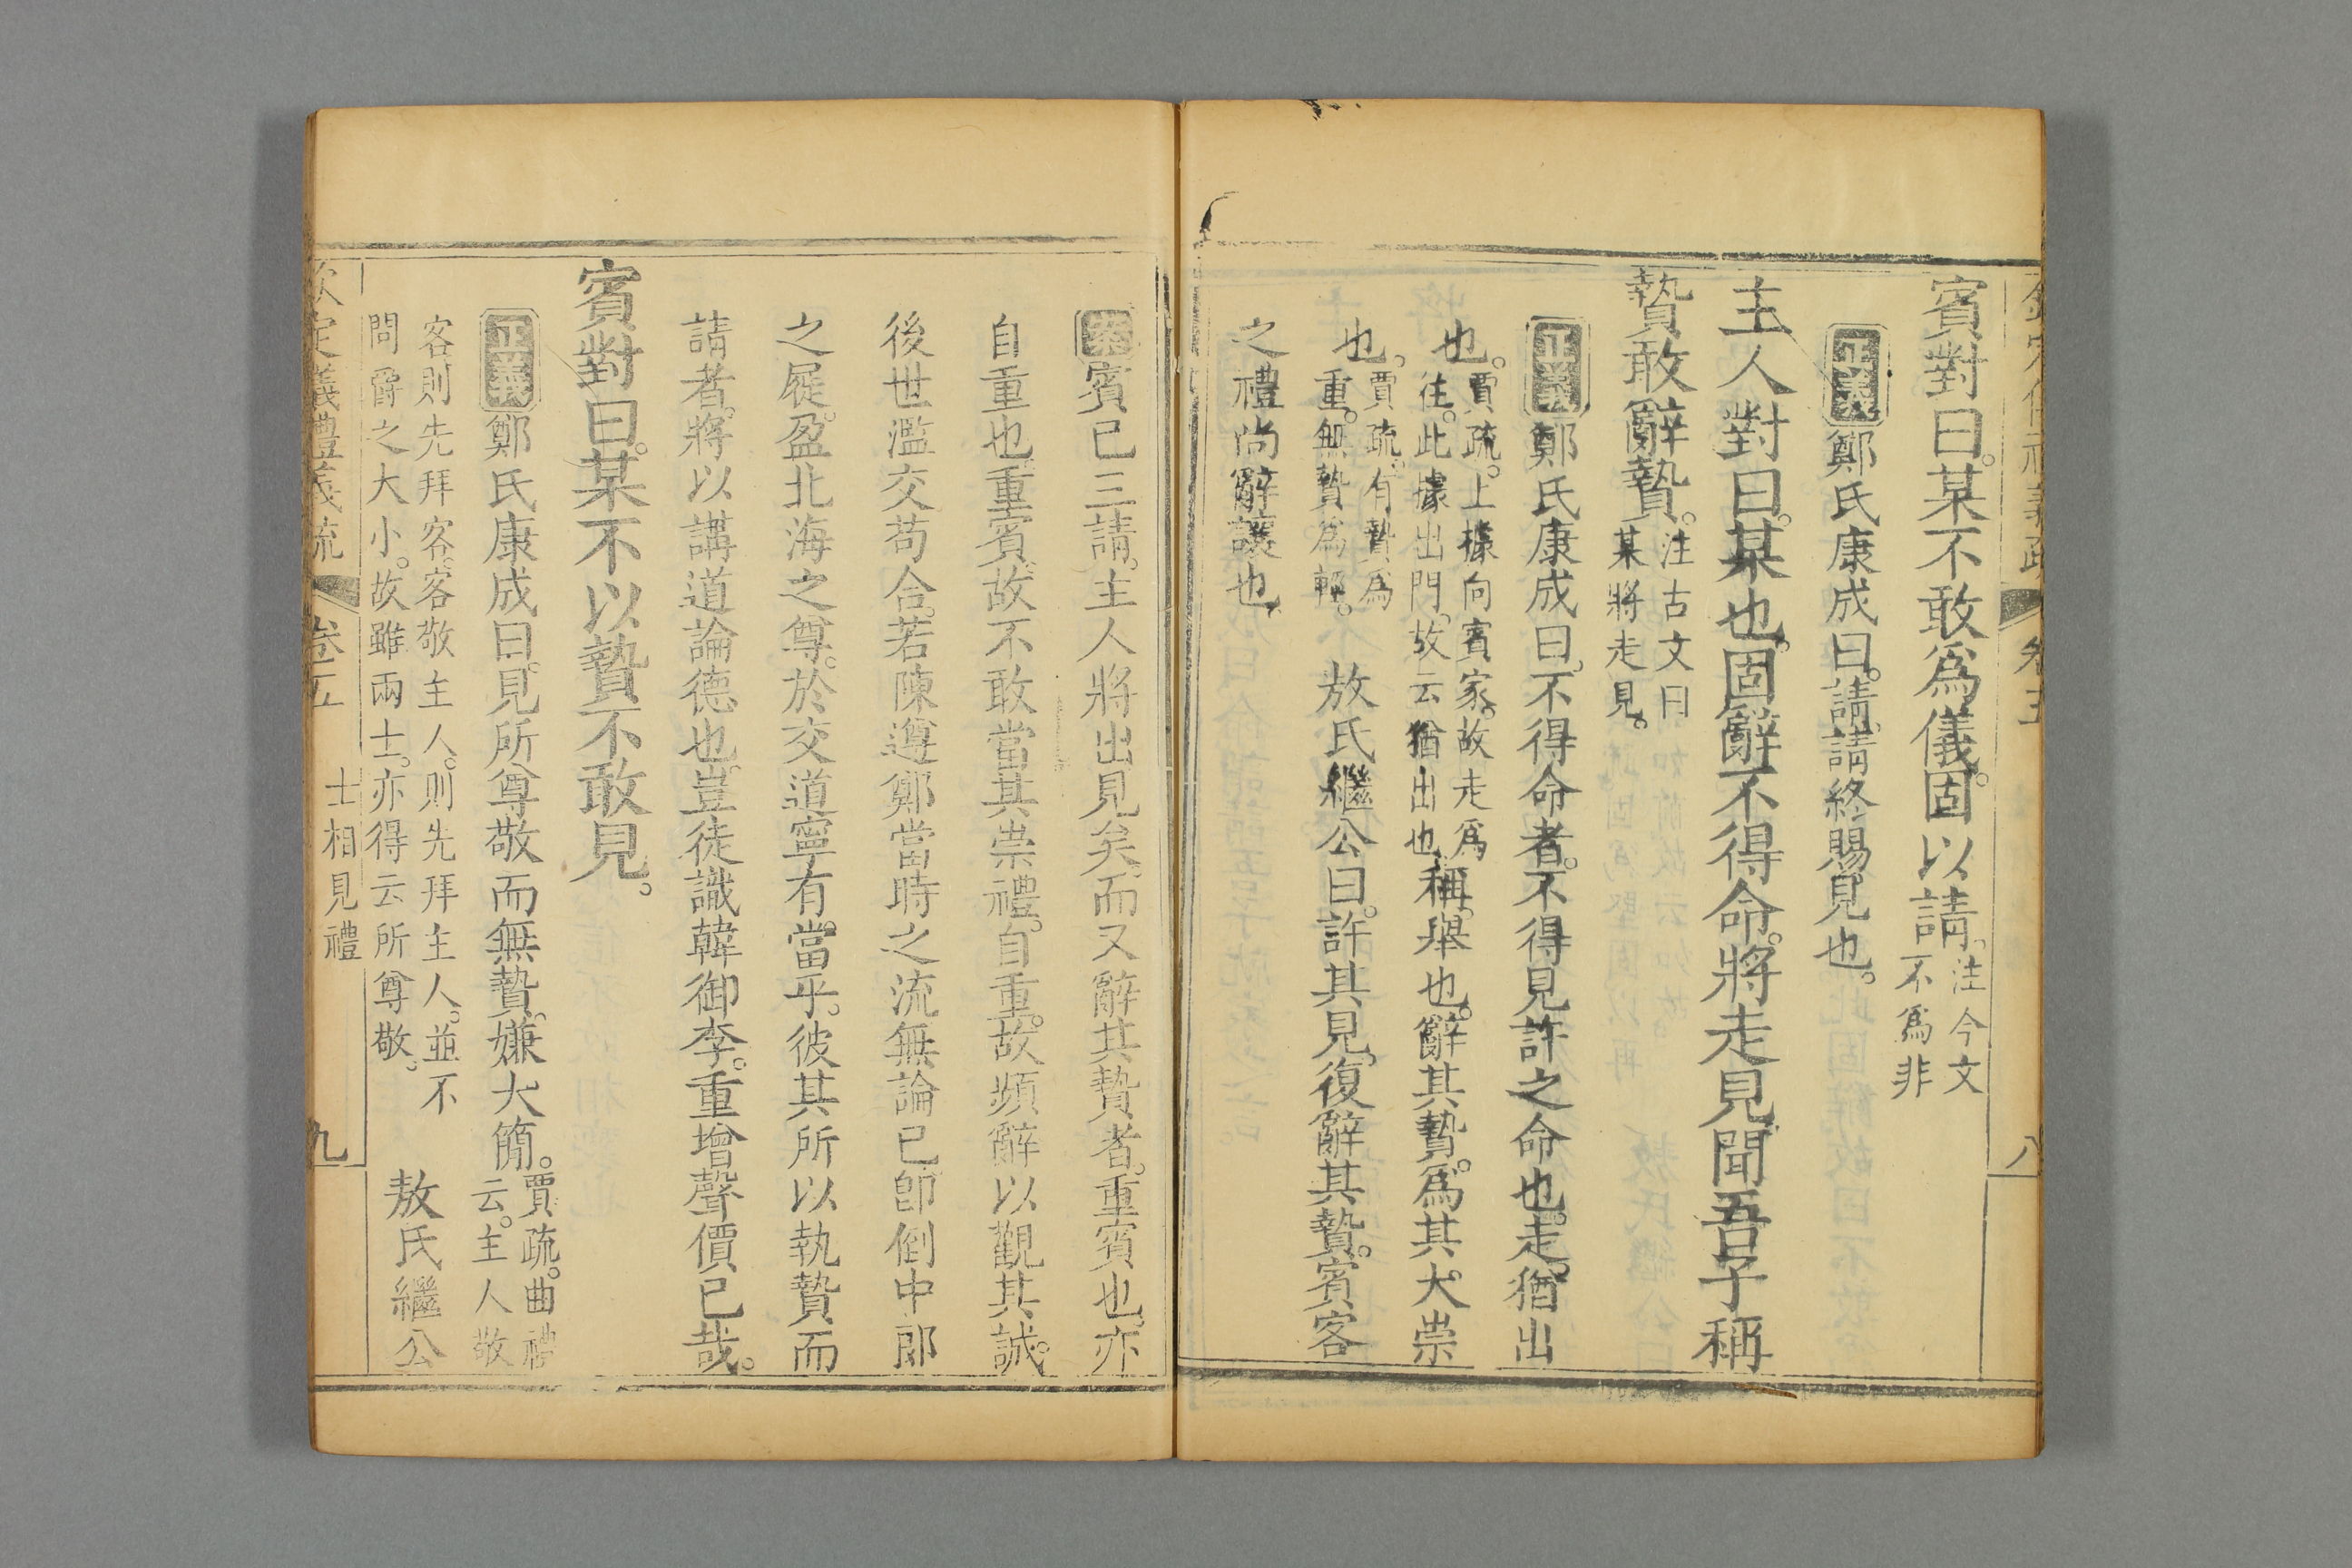 賓對曰。某不敢爲儀。固以請。注今文不爲非
正義鄭氏康成曰。請。請終賜見也。
主人對曰。某也。固辭不得命。將走見。聞吾子稱
贄敢辭贄。注古文曰某將走見。
正義鄭氏康成曰。不得命者。不得見許之命也。走。猶出
也。賈疏。上據向賓家。故走爲往。此據出門。故云猶出也。稱。舉也。辭其贄。爲其大崇
也。賈疏。有贄爲重。無贄爲輕。敖氏繼公曰。許其見。復辭其贄。賓客
之禮尚辭讓也。
案賓已三請。主人將出見矣。而又辭其贄者。重賓也。亦
自重也。重賓。故不敢當其崇禮。自重。故頻辭以觀其誠。
後世濫交苟合。若陳遵鄭當時之流無論已。卽倒中郎
之屣。盈北海之尊。於交道寧有當乎。彼其所以執贄而
請者。將以講道論德也。豈徒識韓御李。重增聲價已哉。
賓對曰。某不以贄不敢見。
正義鄭氏康成曰。見所尊敬而無贄。嫌大簡。賈疏。曲禮云。主人敬
客則先拜客。客敬主人。則先拜主人。並不問爵之大小。故雖兩士。亦得云所尊敬。敖氏繼公
欽定儀禮義疏 卷五 士相見禮 九